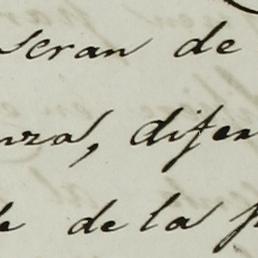 seran de
nza, difer
de la